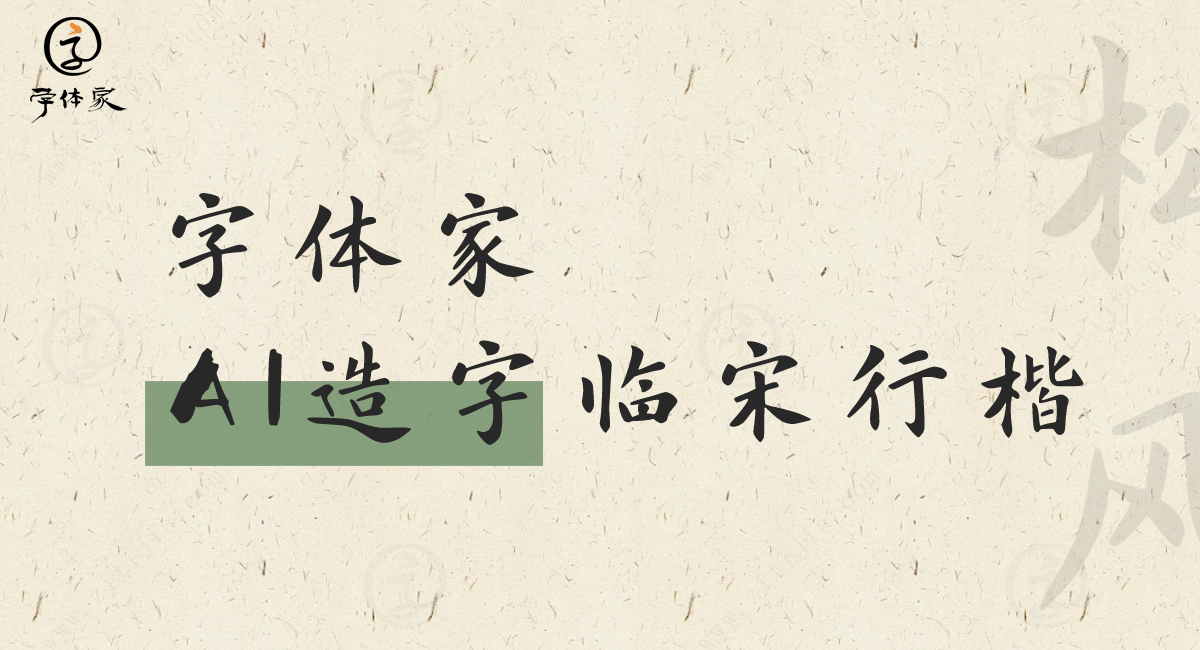 字体家
字体家
AI造字临宋行楷
松
风